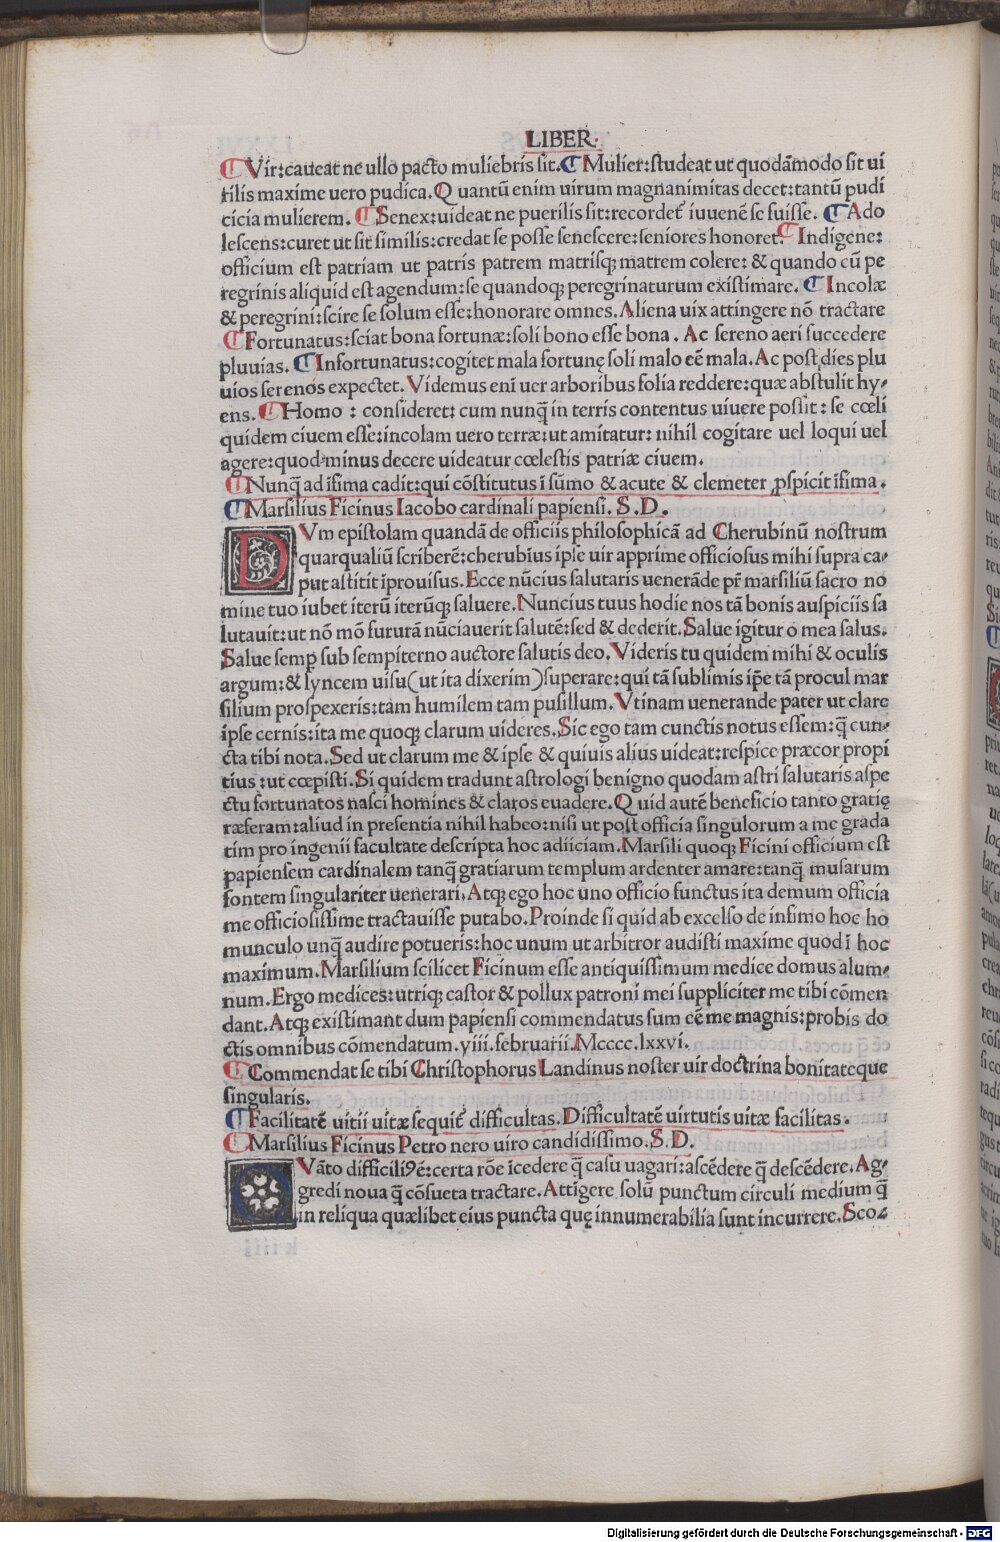 LIBER.
¶ Vir:caueat ne ullo pacto muliebris sit.¶ Mulier:studeat ut quodāmodo sit ui
rilis maxime uero pudica.Quantū enim uirum magnanimitas decet:tantū pudi
cicia mulierem. ¶ Senex:uideat ne puerilis sit:recordet̄ iuuenē se fuisse. ¶ Ado
lescens:curet ut sit similis:credat se posse senescere:seniores honoret.¶ Indigene:
officium est patriam ut patris patrem matrisq; matrem colere: & quando cū pe
regrinis aliquid est agendum:se quandoq; peregrinaturum existimare. ¶ Incolæ
& peregrini:scire se solum esse:honorare omnes.Aliena uix attingere nō tractare
¶ Fortunatus:sciat bona fortunæ:soli bono esse bona . Ac sereno aeri succedere
pluuias. ¶ Infortunatus:cogitet mala fortunę soli malo eē mala.Ac post dies plu
uios serenos expectet.Videmus eni uer arboribus folia reddere:quæ abstulit hy-
ens.¶ Homo : consideret: cum nunq̄ in terris contentus uiuere possit : se cœli
quidem ciuem esse:incolam uero terræ:ut amitatur: nihil cogitare uel loqui uel
agere:quod minus decere uideatur cœlestis patriæ ciuem.
¶ Nunq̄ ad īfima cadit:qui cōstitutus ī sūmo & acute & clemeter ꝓspicit īfima.
¶ Marsilius Ficinus Iacobo cardinali papiensi. S.D.
DVm epistolam quandā de officiis philosophicā ad Cherubinū nostrum
quarqualiū scriberē:cherubius ipse uir apprime officiosus mihi supra ca-
put astitit īprouisus.Ecce nūcius salutaris uenerāde pr̄ marsiliū sacro no
mine tuo iubet iterū iterūq; saluere.Nuncius tuus hodie nos tā bonis auspiciis sa
lutauit:ut nō mō fururā nūciauerit salutē:sed & dederit.Salue igitur o mea salus.
Salue semp sub sempiterno auctore salutis deo.Videris tu quidem mihi & oculis
argum:& lyncem uisu(ut ita dixerim)superare:qui tā sublimis ip̄e tā procul mar
silium prospexeris:tam humilem tam pusillum.Vtinam uenerande pater ut clare
ipse cernis:ita me quoq; clarum uideres.Sic ego tam cunctis notus essem:q̄ cun-
cta tibi nota.Sed ut clarum me & ipse & quiuis alius uideat:respice præcor propi
tius :ut cœpisti.Si quidem tradunt astrologi benigno quodam astri salutaris aspe
ctu fortunatos nasci homines & claros euadere.Quid autē beneficio tanto gratię
ræferam:aliud in presentia nihil habeo:nisi ut post officia singulorum a me grada
tim pro ingenii facultate descripta hoc adiiciam.Marsili quoq; Ficini officium est
papiensem cardinalem tanq̄ gratiarum templum ardenter amare:tanq̄ musarum
fontem singulariter uenerari.Atq; ego hoc uno officio functus ita demum officia
me officiosissime tractauisse putabo.Proinde si quid ab excelso de infimo hoc ho
munculo unq̄ audire potueris:hoc unum ut arbitror audisti maxime quod ī hoc
maximum.Marsilium scilicet Ficinum esse antiquissimum medice domus alum-
num.Ergo medices:utriq; castor & pollux patroni mei suppliciter me tibi cōmen
dant.Atq; existimant dum papiensi commendatus sum eē me magnis:probis do
ctis omnibus cōmendatum.yiii.februarii.Mcccc.lxxvi.
¶ Commendat se tibi Christophorus Landinus noster uir doctrina bonitateque
singularis.
¶ Facilitatē uitii uitæ sequit̄ difficultas.Difficultatē uirtutis uitæ facilitas.
¶ Marsilius Ficinus Petro nero uiro candidissimo.S.D.
QVāto difficiliꝰ ē:certa rōe īcedere q̄ casu uagari:ascēdere q̄ descēdere.Ag-
gredi noua q̄ cōsueta tractare.Attigere solū punctum circuli medium q̄
in reliqua quælibet eius puncta quę innumerabilia sunt incurrere.Sco-
Digitalisierung gefördert durch die Deutsche Forschungsgemeinschaft - DFG